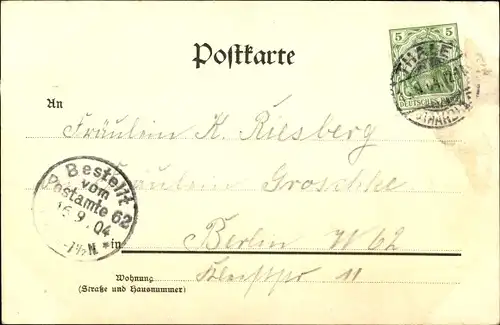 Postkarte
5
DEUTSCHES
THALE
(HARZ)
An
Fräulein K. Riesberg
Fräulein Groschke
Bestellt
vom
Postamte 62
15.9.04
*in
Berlin W 62
Kleiststr 11
Wohnung
(Straße und Hausnummer)